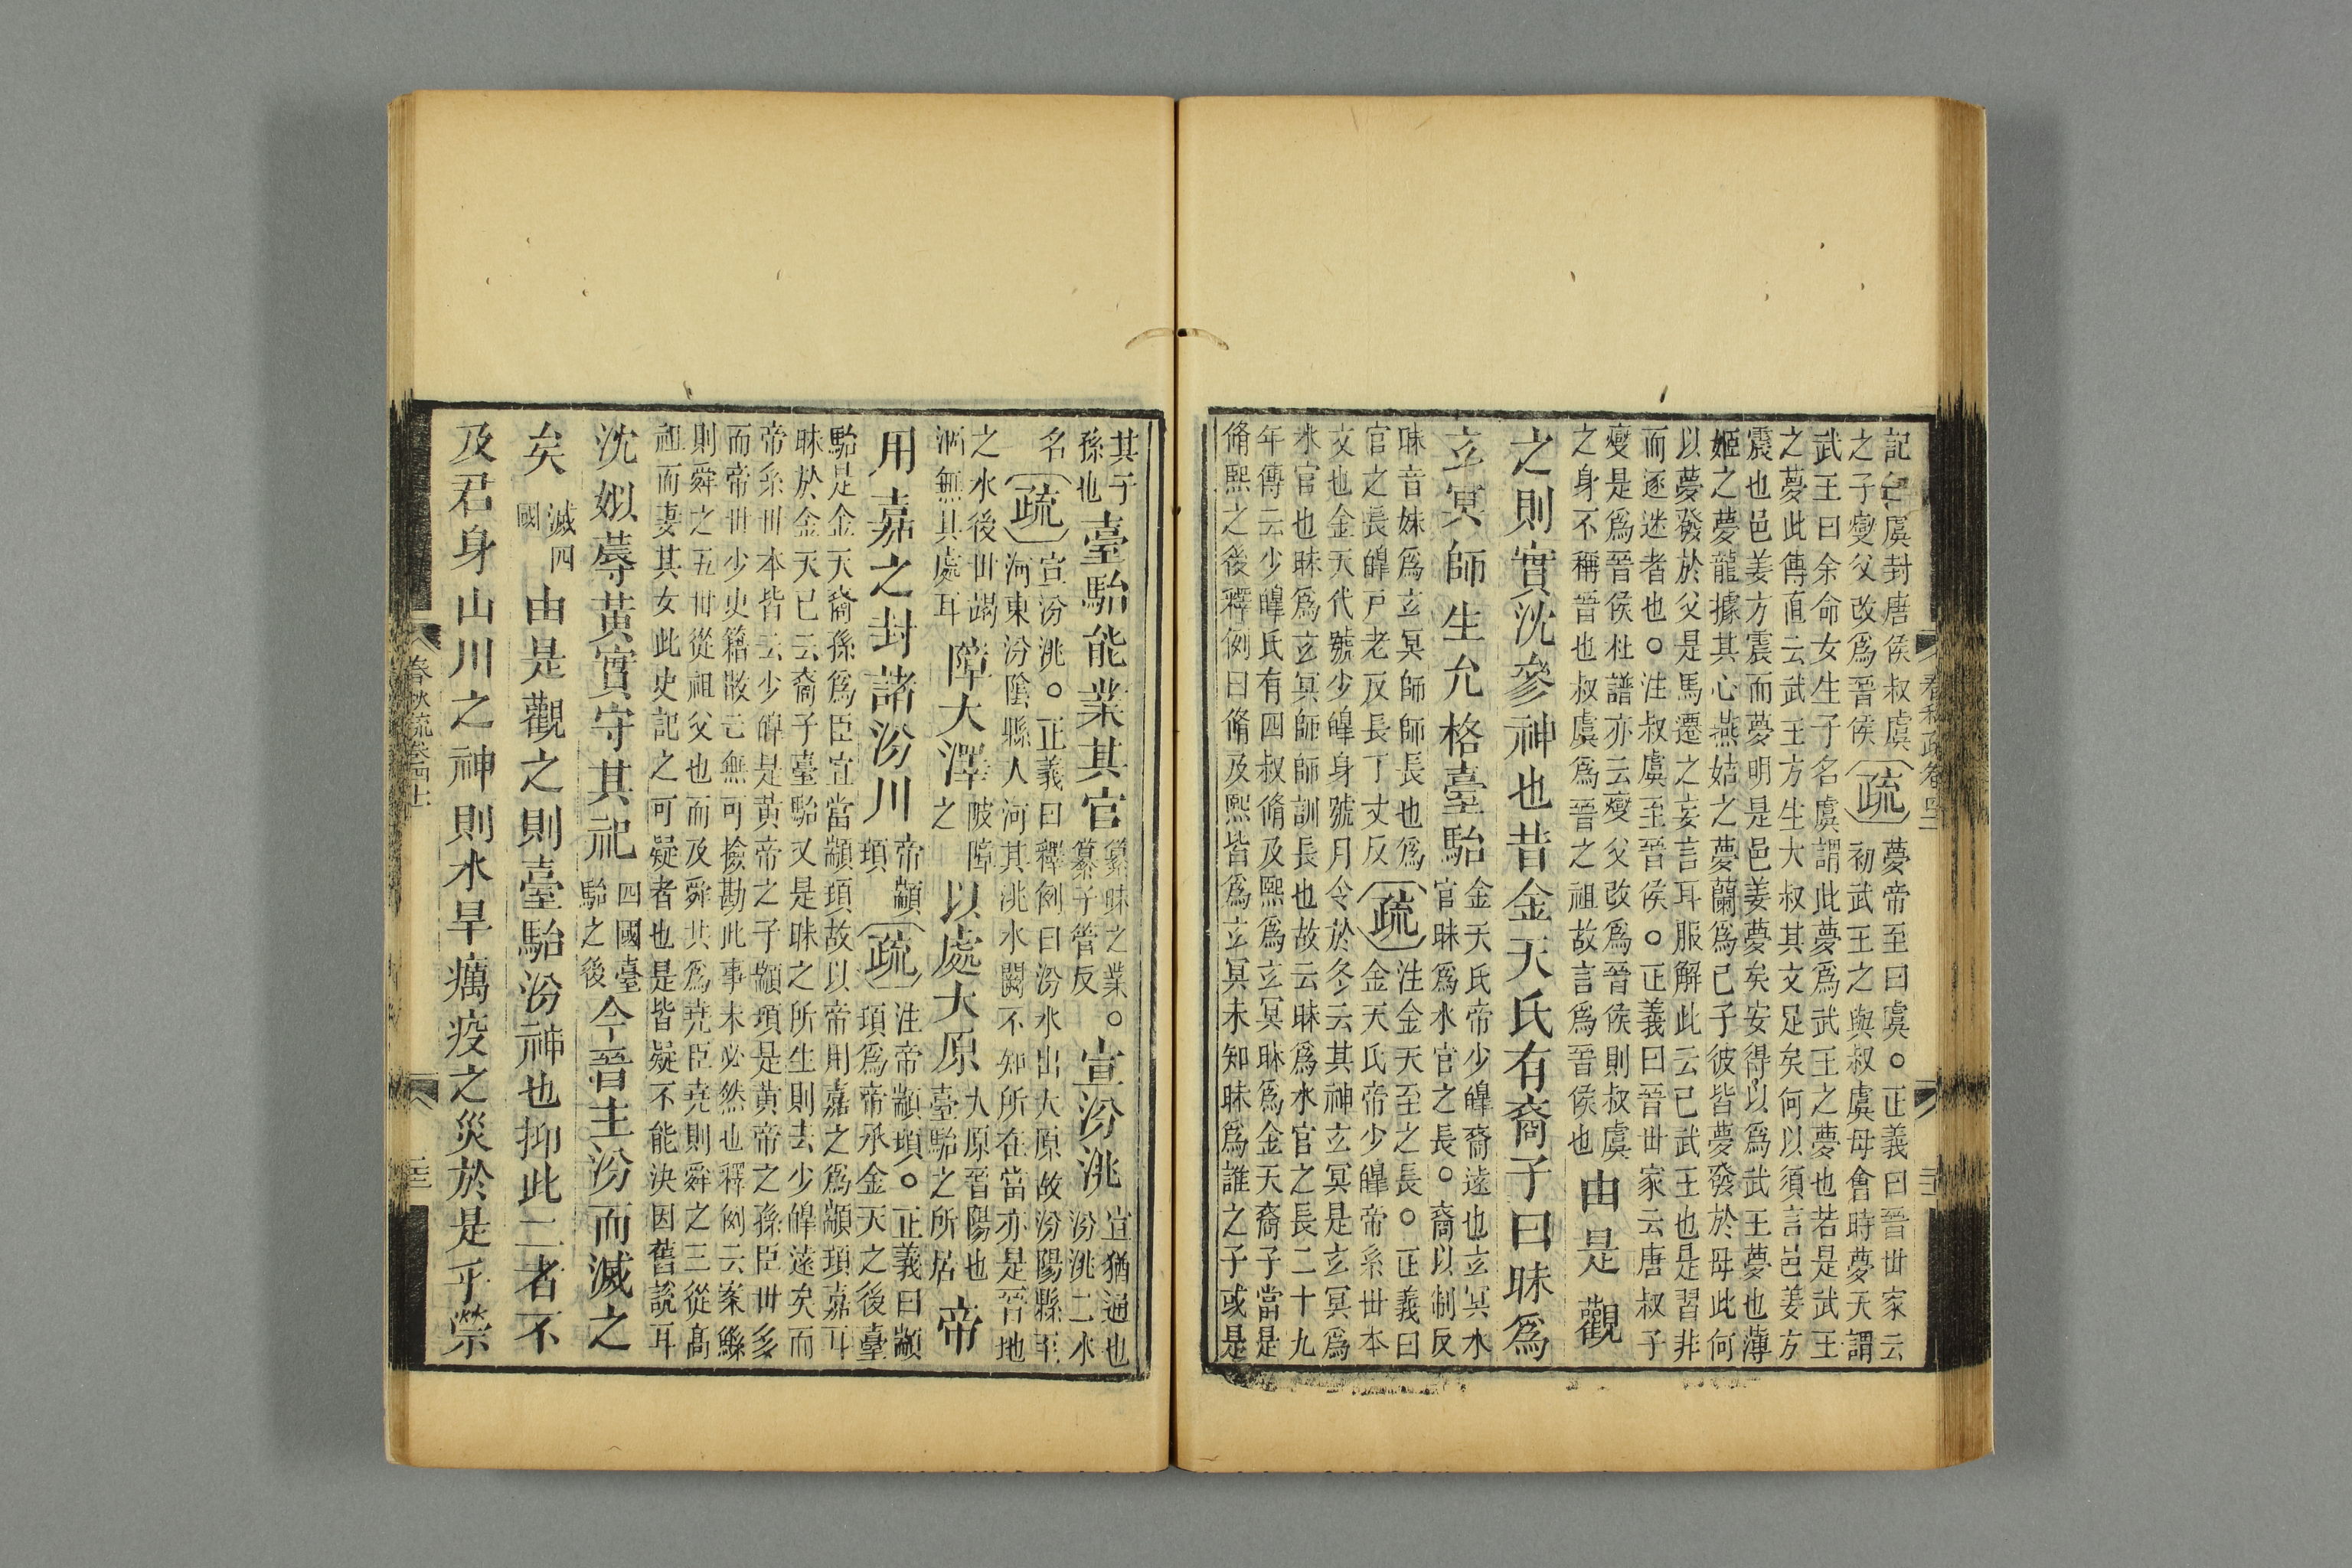 記云虞封唐侯叔虞疏夢帝至曰虞○正義曰晉丗家云
之子燮父改爲晉侯初武王之與叔虞母會時夢天謂
武王曰余命女生子名虞謂此夢爲武王之夢也若是武王
之夢此傳直云武王方生大叔其文足矣何以須言邑姜方
震也邑姜方震而夢明是邑姜夢矣安得以爲武王夢也薄
姬之夢龍據其心燕姞之夢蘭爲己子彼皆夢發於母此何
以夢發於父是馬遷之妄言耳服解此云己武王也是習非
而遂迷者也○注叔虞至晉侯○正義曰晉丗家云唐叔子
燮是爲晉侯杜譜亦云燮父改爲晉侯則叔虞
之身不稱晉也叔虞爲晉之祖故言爲晉侯也由是觀
之則實沈參神也昔金天氏有裔子曰昧爲
玄冥師生允格臺駘金天氏帝少皡裔遠也玄冥水
官昧爲水官之長○裔以制反
昧音妹爲玄冥師師長也爲疏注金天至之長○正義曰
官之長皡戸老反長丁丈反金天氏帝少皡帝系丗本
文也金天代號少皡身號月令於冬云其神玄冥是玄冥爲
水官也昧爲玄冥師師訓長也故云昧爲水官之長二十九
年傳云少皡氏有四叔脩及熙爲玄冥昧爲金天裔子當是
脩熙之後釋例曰脩及熙皆爲玄冥未知昧爲誰之子或是
其子
孫也臺駘能業其官纂昧之業○
纂子管反宣汾洮宣猶通也
汾洮二水
名疏宣汾洮○正義曰釋例曰汾水出大原故汾陽縣至
河東汾陰縣人河其洮水闕不知所在當亦是晉地
之水後丗竭
涸無其處耳障大澤陂障
之以處大原大原晉陽也
臺駘之所居帝
用嘉之封諸汾川帝顓
頊疏注帝顓頊○正義曰顓
頊爲帝承金天之後臺
駘是金天裔孫爲臣宜當顓頊故以帝用嘉之爲顓頊嘉耳
昧於金天已云裔子臺駘又是昧之所生則去少皡遠矣而
帝系丗本皆云少皡是黃帝之子顓頊是黃帝之孫臣丗多
而帝丗少史籍散亡無可撿勘此事未必然也釋例云案鯀
則舜之五丗從祖父也而及舜共爲堯臣堯則舜之三從高
祖而妻其女此史記之可疑者也是皆疑不能決因舊說耳
沈姒蓐黃實守其祀四國臺
駘之後今晉主汾而滅之
矣滅四
國由是觀之則臺駘汾神也抑此二者不
及君身山川之神則水旱癘疫之災於是乎禜